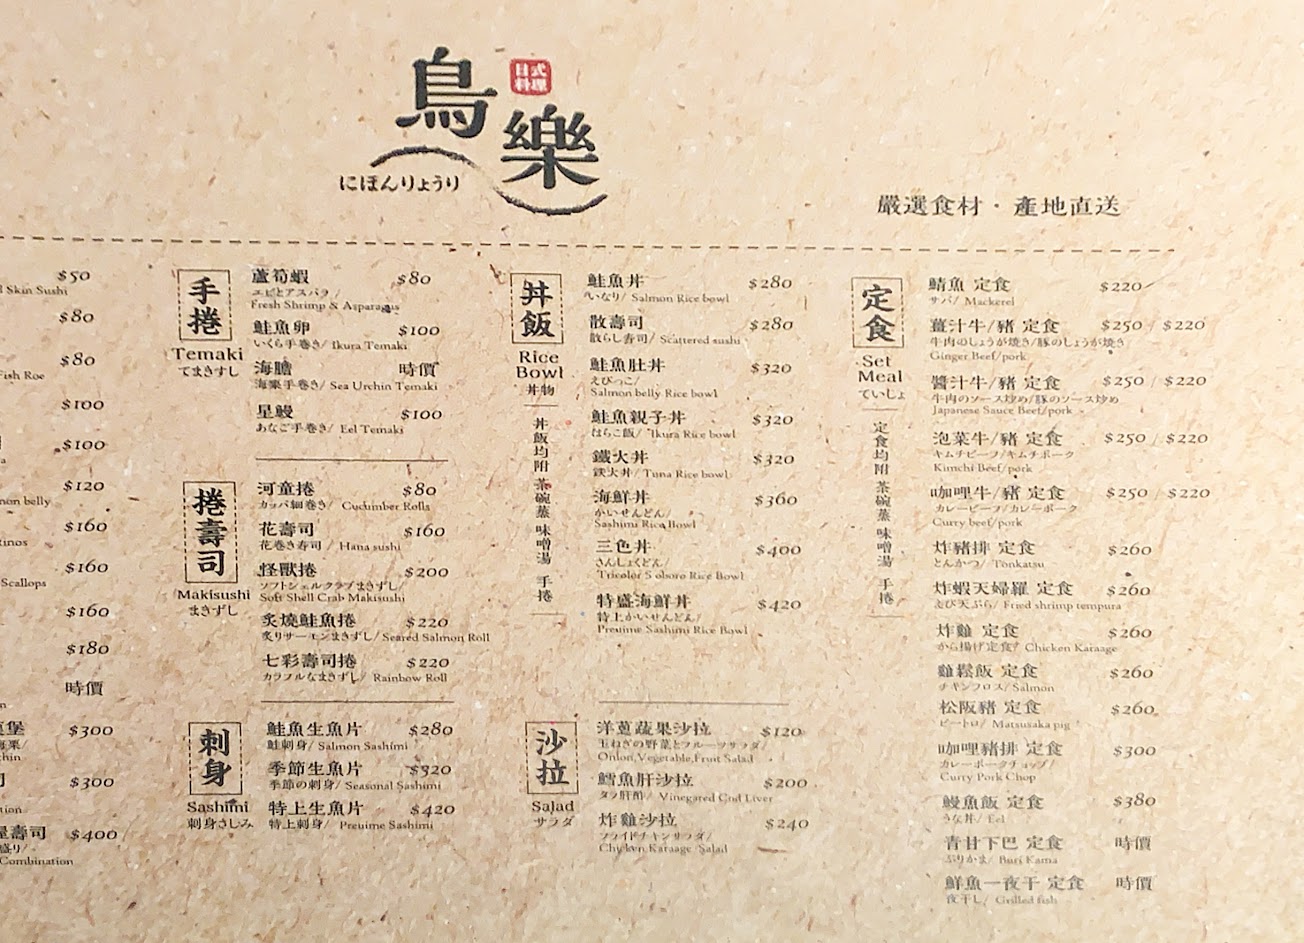 鳥樂
日式料理
にほんりょうり
嚴選食材・產地直送
$50
Skin Sushi
$80
$80
Fish Roe
$100
$100
$120
mon belly
$160
$160
Scallops
$160
$180
時價
$300
$300
壽司 $400
盛り/
Combination
手捲
Temaki
てまきずし
蘆筍蝦 $80
エビとアスパラ/
Fresh Shrimp & Asparagus
鮭魚卵 $100
いくら手巻き/ Ikura Temaki
海膽 時價
海栗手巻き/ Sea Urchin Temaki
星鰻 $100
あなご手巻き/ Eel Temaki
捲壽司
Makisushi
まきずし
河童捲 $80
カッパ細巻き/ Cucumber Rolls
花壽司 $160
花巻き寿司 / Hana sushi
怪獸捲 $200
ソフトシェルクラブまきずし/
Soft Shell Crab Makisushi
炙燒鮭魚捲 $220
炙りサーモンまきずし/ Seared Salmon Roll
七彩壽司捲 $220
カラフルなまきずし/ Rainbow Roll
刺身
Sashimi
刺身さしみ
鮭魚生魚片 $280
鮭刺身/ Salmon Sashimi
季節生魚片 $320
季節の刺身/ Seasonal Sashimi
特上生魚片 $420
特上刺身/ Preuime Sashimi
丼飯
Rice
Bowl
丼物
丼飯均附 茶碗蒸 味噌湯 手捲
鮭魚丼 $280
いなり/ Salmon Rice bowl
散壽司 $280
散らし寿司/ Scattered sushi
鮭魚肚丼 $320
えびっこ/
Salmon belly Rice bowl
鮭魚親子丼 $320
はらこ飯/ Ikura Rice bowl
鐵火丼 $320
鉄火丼/ Tuna Rice bowl
海鮮丼 $360
かいせんどん/
Sashimi Rice Bowl
三色丼 $400
さんしょくどん/
Tricolor Soboro Rice Bowl
特盛海鮮丼 $420
特上かいせんどん/
Preuime Sashimi Rice Bowl
沙拉
Salad
サラダ
洋蔥蔬果沙拉 $120
玉ねぎの野菜とフルーツサラダ/
Onion,Vegetable,Fruit Salad
鱈魚肝沙拉 $200
タラ肝酢/ Vinegared Cod Liver
炸雞沙拉 $240
フライドチキンサラダ/
Chicken Karaage Salad
定食
Set
Meal
ていしょ
定食均附 茶碗蒸 味噌湯 手捲
鯖魚 定食 $220
サバ/ Mackerel
薑汁牛/豬 定食 $250 / $220
牛肉のしょうが焼き/豚のしょうが焼き
Ginger Beef/pork
醬汁牛/豬 定食 $250 / $220
牛肉のソース炒め/豚のソース炒め
Japanese Sauce Beef/pork
泡菜牛/豬 定食 $250 / $220
キムチビーフ/キムチポーク
Kimchi Beef/pork
咖哩牛/豬 定食 $250 / $220
カレービーフ/カレーポーク
Curry beef/pork
炸豬排 定食 $260
とんかつ/ Tonkatsu
炸蝦天婦羅 定食 $260
えび天ぷら/ Fried shrimp tempura
炸雞 定食 $260
から揚げ定食/ Chicken Karaage
雞鬆飯 定食 $260
チキンフロス/ Salmon
松阪豬 定食 $260
ピートロ/ Matsusaka pig
咖哩豬排 定食 $300
カレーポークチョップ/
Curry Pork Chop
鰻魚飯 定食 $380
うな丼/ Eel
青甘下巴 定食 時價
ぶりかま/ Buri Kama
鮮魚一夜干 定食 時價
夜干し/ Grilled fish